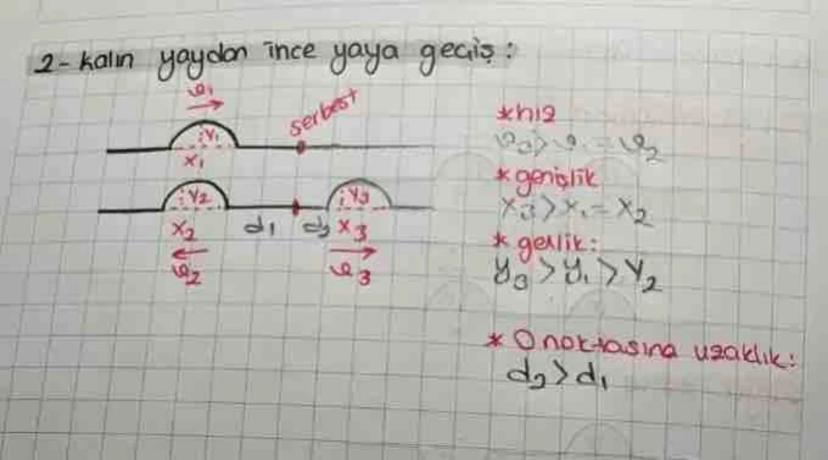 2- kalın yaydan ince yaya geçiş:
υ₁
serbest
y₁
x₁
y₂
y₃
x₂
d₁
d₂
x₃
υ₂
υ₃
*hız
υ₃ > υ₁ = υ₂
*genişlik
x₃ > x₁ = x₂
* genlik:
y₃ > y₁ > y₂
* O noktasına uzaklık:
d₂ > d₁